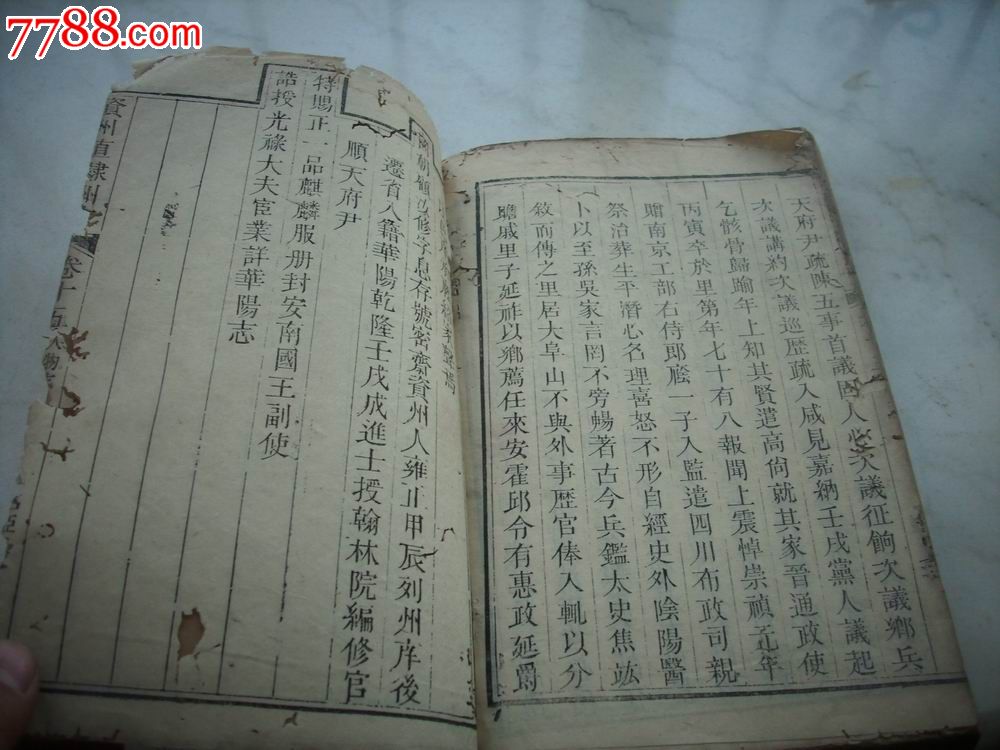 7788.com
天府尹疏陳五事首議固人心次議征餉次議鄉兵
次議講約次議巡歷疏入咸見嘉納壬戌黨人議起
乞骸骨歸踰年上知其賢遣高尙就其家晉通政使
丙寅卒於里第年七十有八報聞上震悼崇禎元年
贈南京工部右侍郎廕一子入監遣四川布政司親
祭治葬生平潛心名理喜怒不形自經史外陰陽醫
卜以至孫吳家言罔不旁暢著古今兵鑑太史焦竑
敘而傳之里居大阜山不與外事歷官俸入輒以分
贍戚里子延祚以鄉薦任來安霍邱令有惠政延爵
修字息存號密齋資州人雍正甲辰列州庠後
遷省入籍華陽乾隆壬戌成進士授翰林院編修官
順天府尹
特賜正一品麒麟服册封安南國王副使
誥授光祿大夫宦業詳華陽志
資州直隸州
卷十
人物